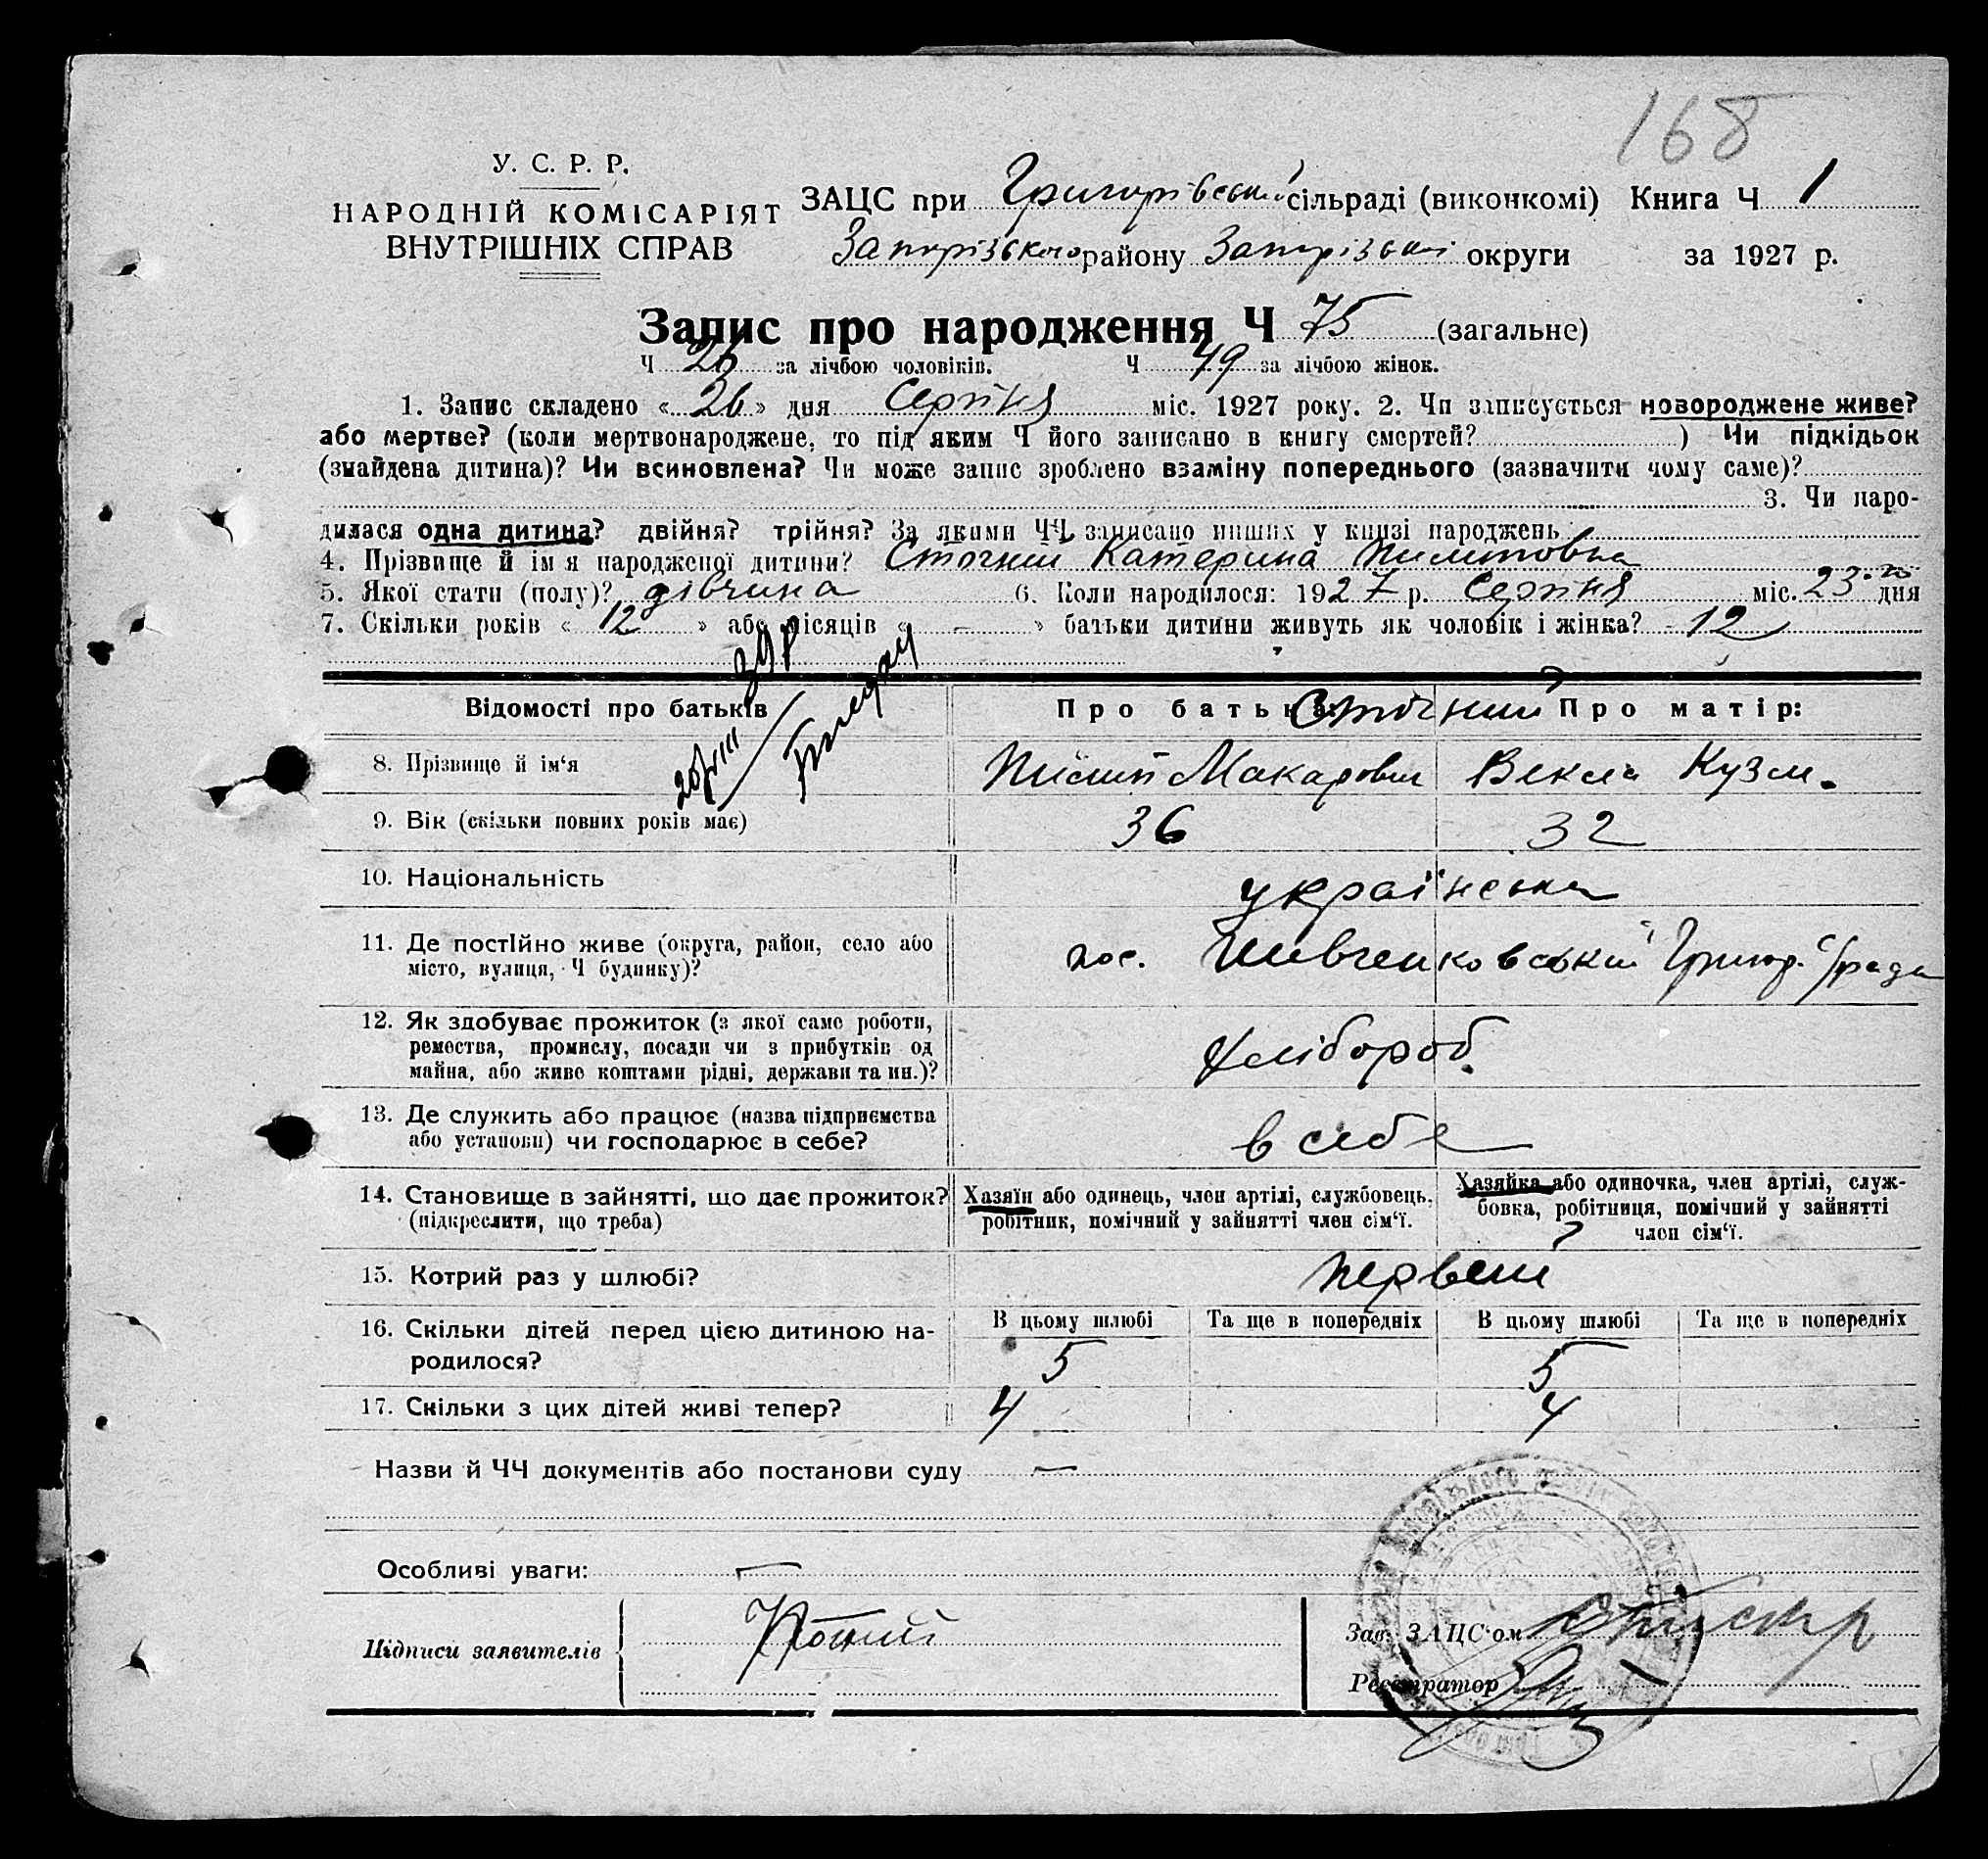 168
У. С. Р. Р.
НАРОДНІЙ КОМІСАРІЯТ
ВНУТРІШНІХ СПРАВ
ЗАЦС при Григорівській сільраді (виконкомі) Книга Ч 1
Запорізького району Запорізької округи за 1927 р.
Запис про народження Ч 75 (загальне)
Ч 26 за лічбою чоловіків. Ч 49 за лічбою жінок.
1. Запис складено « 26 » дня Серпня міс. 1927 року. 2. Чи записується новороджене живе?
або мертве? (коли мертвонароджене, то під яким Ч його записано в книгу смертей? ) Чи підкідьок
(знайдена дитина)? Чи всиновлена? Чи може запис зроблено взаміну попереднього (зазначити чому саме)?
3. Чи наро-
дилася одна дитина? двійня? трійня? За якими ЧЧ записано инших у книзі народжень
4. Прізвище й ім'я народженої дитини? Сточний Катерина Пилиповна
5. Якої стати (полу)? дівчина 6. Коли народилося: 1927 р. Серпня міс. 23-го дня
7. Скільки років « 12 » або місяців « - » батьки дитини живуть як чоловік і жінка? 12
Відомості про батьків Про батька: Сточний Про матір:
8. Прізвище й ім‘я Пилип Макарович Векла Кузм.
9. Вік (скільки повних років має) 36 32
10. Національність українська
11. Де постійно живе (округа, район, село або
місто, вулиця, Ч будинку)? пос. Шевченковський Григор. с/рада
12. Як здобуває прожиток (з якої саме роботи,
ремества, промислу, посади чи з прибутків од
майна, або живе коштами рідні, держави та ин.)? Хлібороб.
13. Де служить або працює (назва підприємства
або установи) чи господарює в себе? в себе
14. Становище в зайнятті, що дає прожиток?
(підкреслити, що треба)
Хазяїн або одинець, член артілі, службовець,
робітник, помічний у зайнятті член сім‘ї.
Хазяйка або одиночка, член артілі, служ-
бовка, робітниця, помічний у зайнятті
член сім‘ї.
15. Котрий раз у шлюбі? первий
16. Скільки дітей перед цією дитиною на-
родилося?
В цьому шлюбі Та ще в попередніх В цьому шлюбі Та ще в попередніх
5 5
17. Скільки з цих дітей живі тепер? 4 4
Назви й ЧЧ документів або постанови суду —
Особливі уваги: —
Підписи заявителів
Зав. ЗАЦС‘ом
Реєстратор